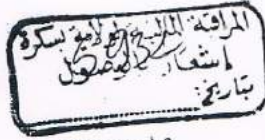 المراقبة المالية لولاية بسكرة
إشعار بالوصول
بتاريخ: